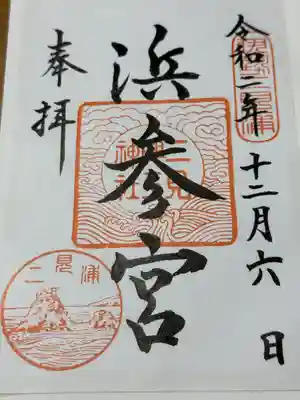 令和二年十二月六日
浜参宮
奉拝
二見
興玉
神社
二見浦